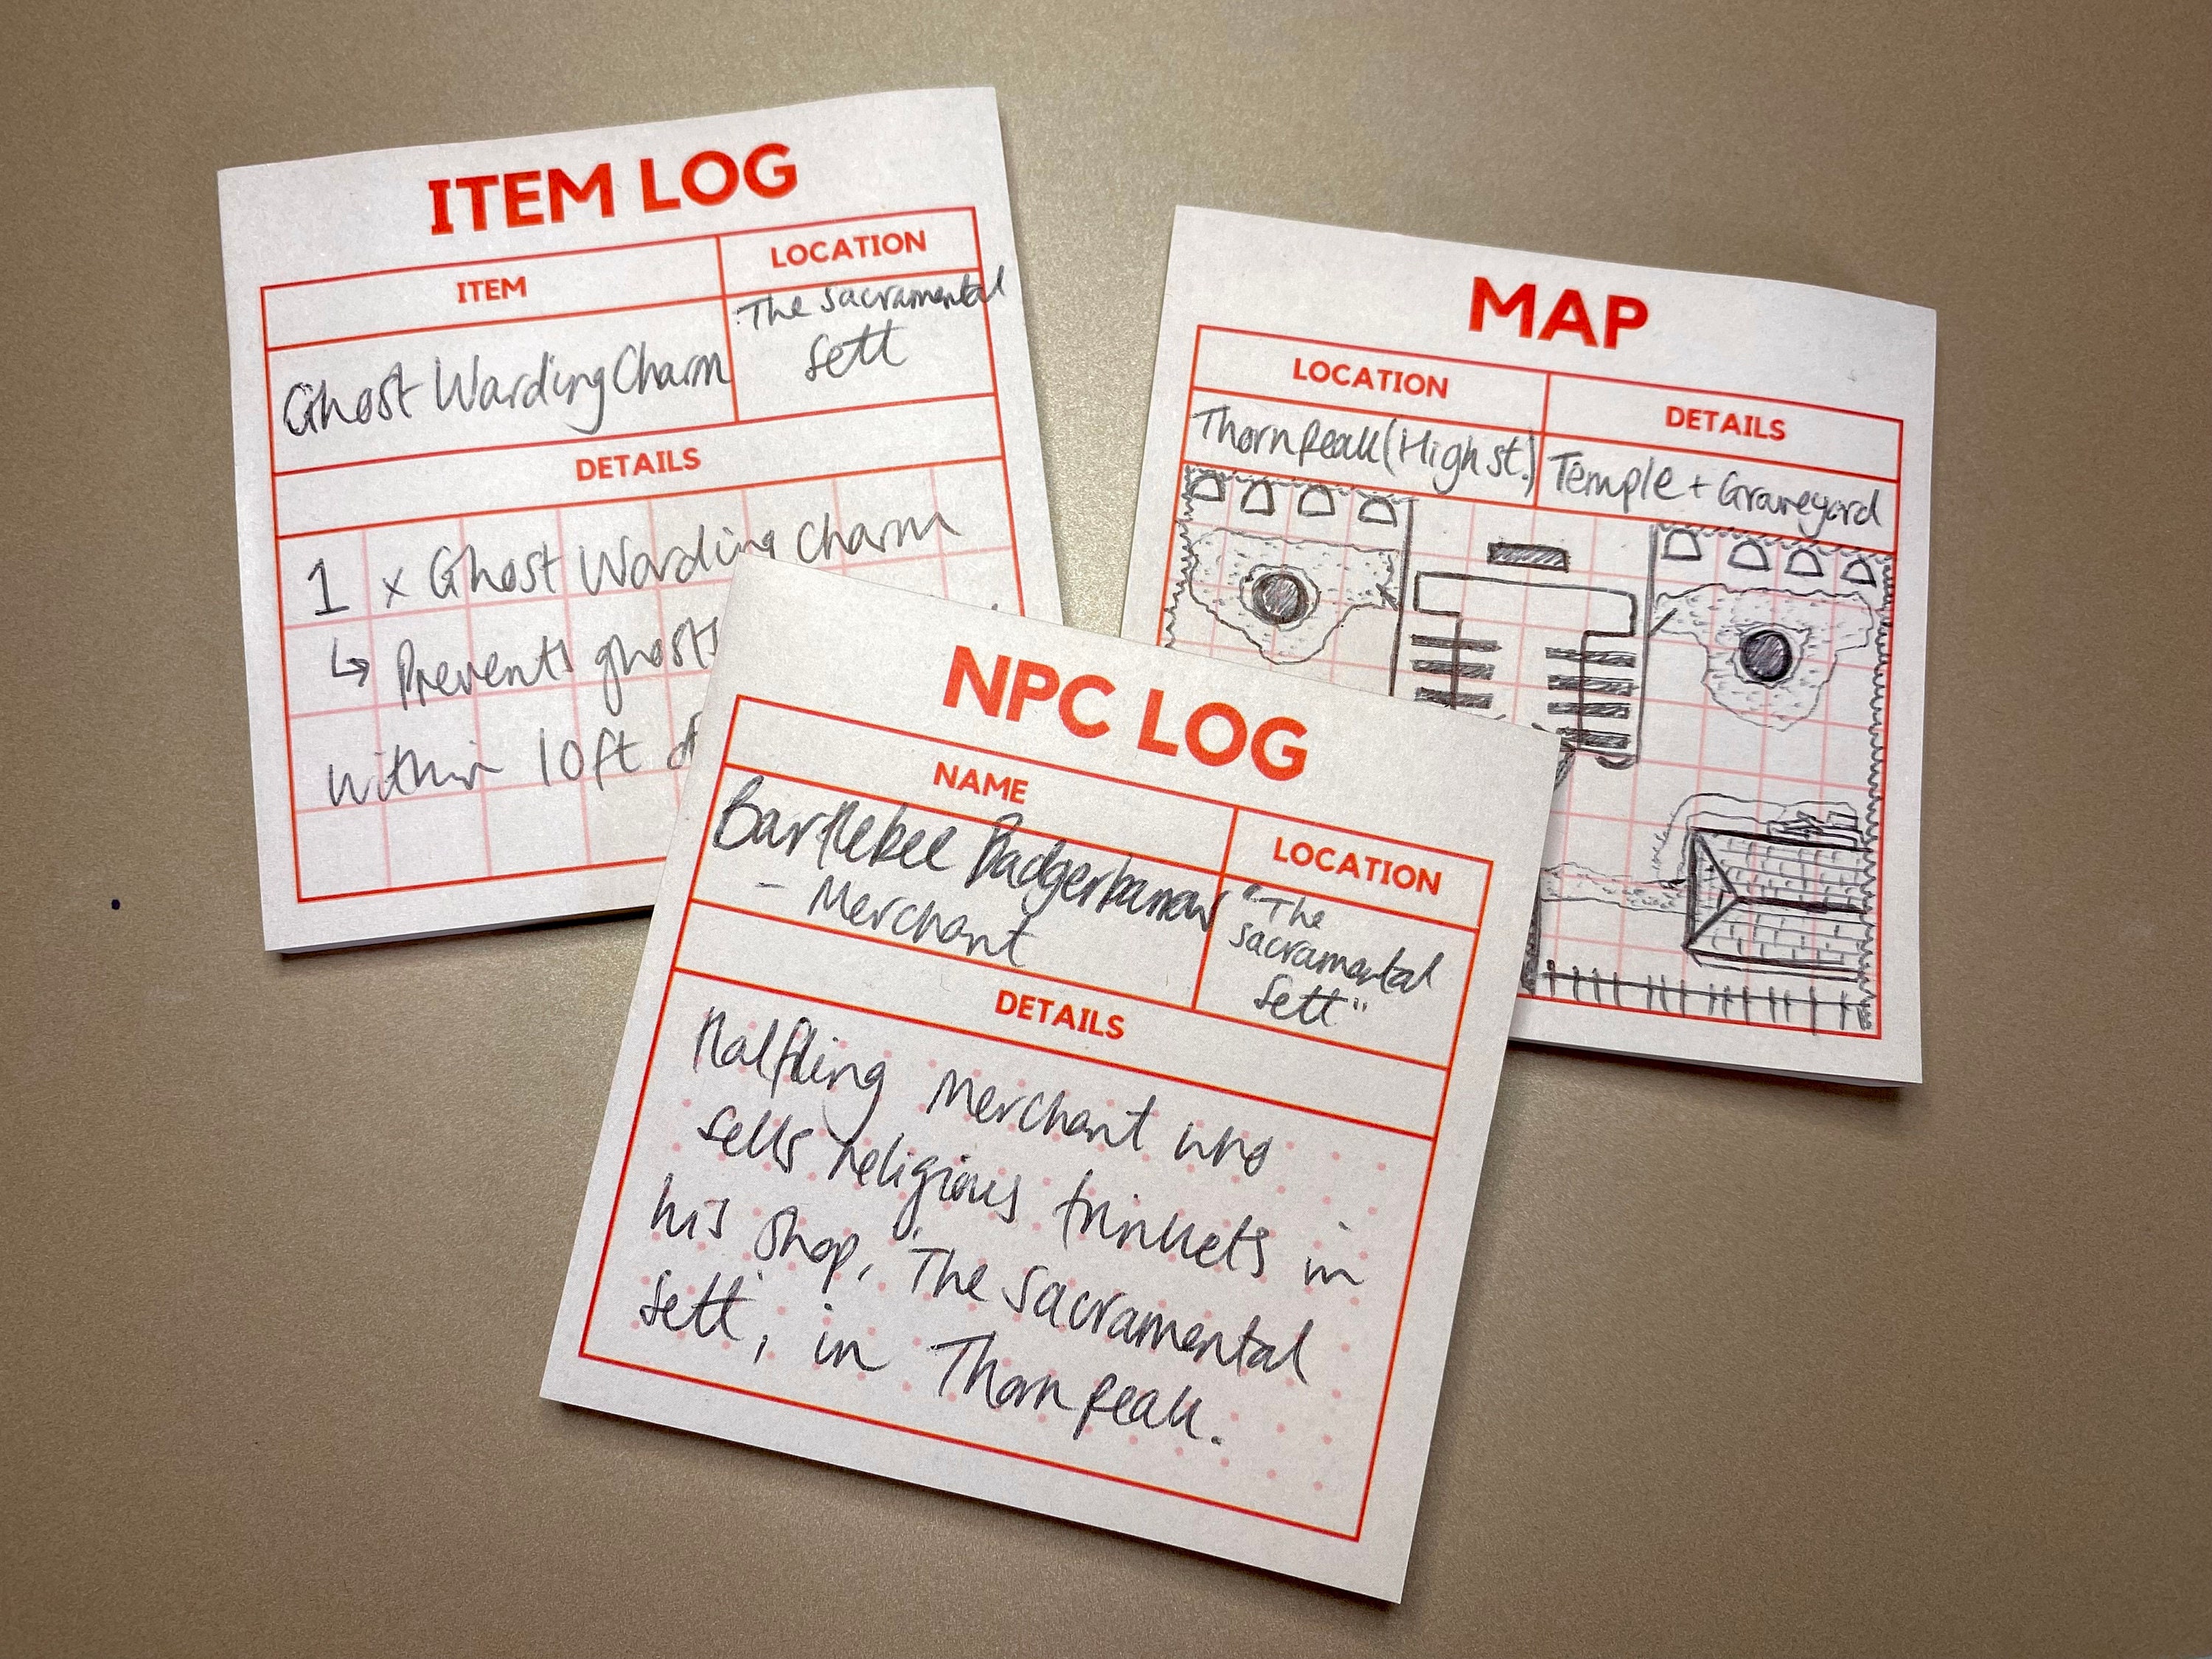 ITEM LOG
ITEM
LOCATION
Ghost Warding Charm
The Sacramental
Sett
DETAILS
1 x Ghost Warding Charm
↳ Prevents ghosts
within 10ft of
MAP
LOCATION
DETAILS
Thornpeak (High St.)
Temple + Graveyard
NPC LOG
NAME
LOCATION
Bartlebee Badgerburrow
- Merchant
"The
Sacramental
Sett"
DETAILS
Halfling Merchant who
sells religious trinkets in
his shop, 'The Sacramental
Sett', in Thornpeak.